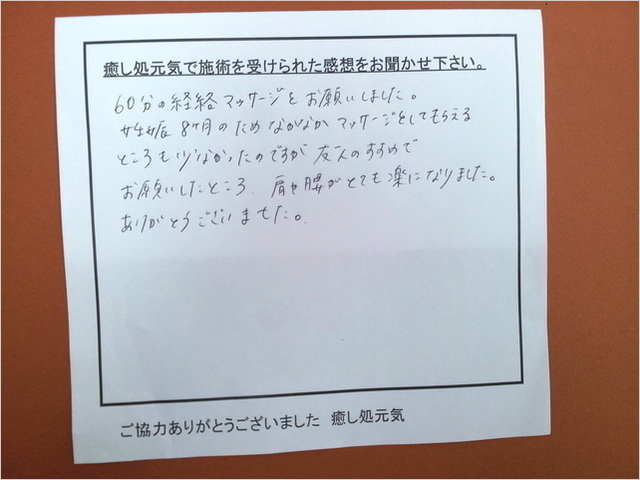 癒し処元気で施術を受けられた感想をお聞かせ下さい。
60分の経絡マッサージをお願いしました。
妊娠8ヶ月のためなかなかマッサージをしてもらえる
ところも少なかったのですが友人のすすめで
お願いしたところ、肩や腰がとても楽になりました。
ありがとうございました。
ご協力ありがとうございました 癒し処元気